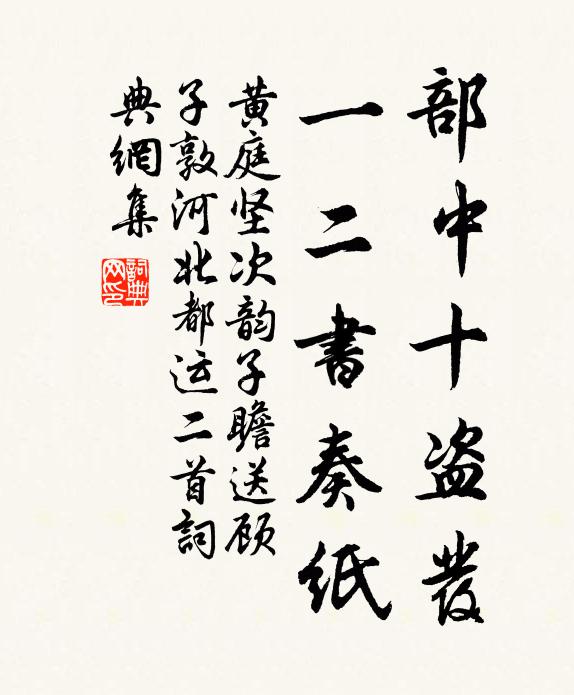 部中十盗叢
一二書奏紙
黄庭坚次韵子瞻送顾
子敦河北都运二首詞
典網集
詞典网印